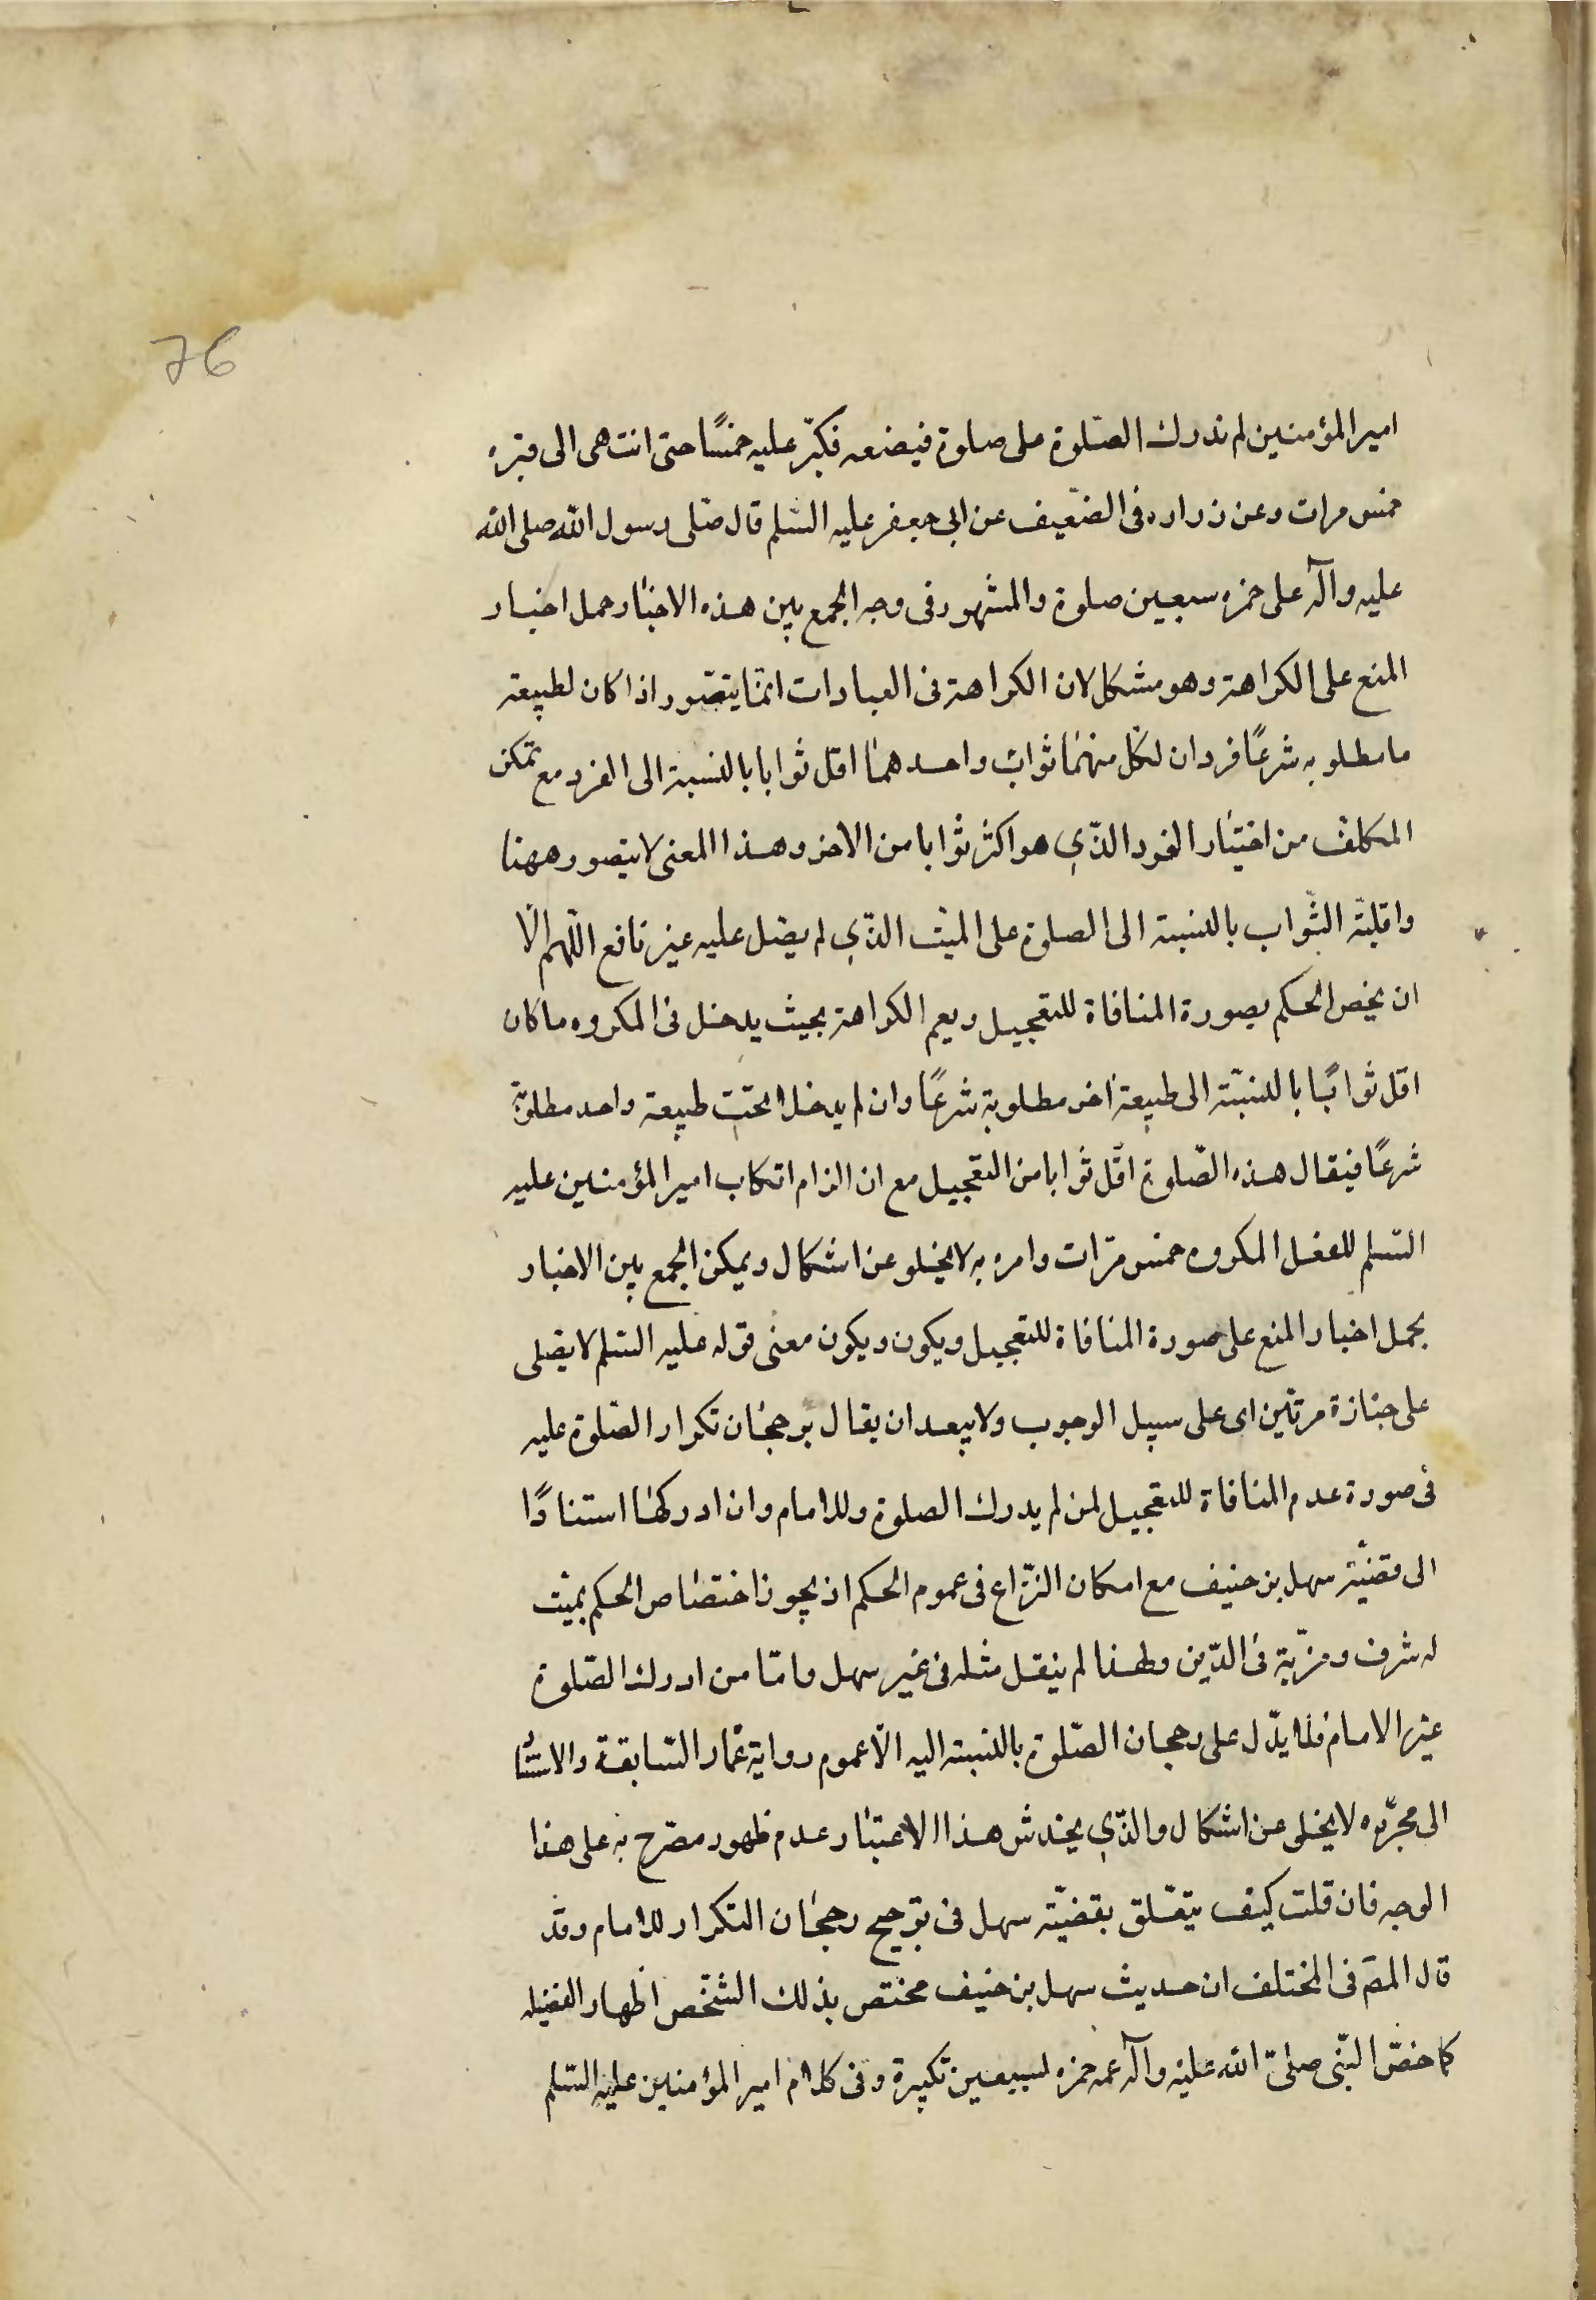 76
امير المؤمنين لم ندرك الصّلوة على صلوة فيضعه فكبّر عليه خمسًا حتى انتهى الى قبره
خمس مرات وعن زراره فى الضّعيف عن ابى جعفر عليه السّلم قال صّلى رسول الله صلى الله
عليه وآله على حمزه سبعين صلوة والمشهور فى وجه الجمع بين هذه الاخبار حمل اخبار
المنع على الكراهة وهو مشكل لان الكراهة فى العبادات انمّا يتصّور اذا كان لطبيعة
ما مطلوبه شرعًا فردان لكلّ منهمَا ثواب واحدهما اقل ثوابا بالنسبة الى الفرد مع تمكن
المكلف من اختيَار الفرد الذّي هو اكثر ثوابا من الاخر وهذا المعنى لا يتصور ههنا
واقليّة الثّواب بالنسبة الى الصلوة على الميّت الذّي لم يصّل عليه غير نافع اللّهم الّا
ان يخص الحكم بصورة المنافاة للتعجيل ويعم الكراهة بحيث يدخل فى المكروه ما كان
اقل ثوابًا بالنسبّة الى طبيعة اخر مطلوبة شرعًا وان لم يدخلا تحت طبيعة واحد مطلوبة
شرعًا فيقال هذه الصّلوة اقّل ثوابا من التعجيل مع ان الزام اتكاب امير المؤمنين عليه
السّلم للفعل المكروه خمس مرّات وامره به لا يخلو عن اشكال ويمكن الجمع بين الاخبار
بحمل اخبار المنع على صورة المنافاة للتعجيل ويكون ويكون معنى قوله عليه السّلم لا يصّلى
على جنازة مرتين اى على سبيل الوجوب ولا يبعد ان يقال برجحَان تكرار الصّلوة عليه
فى صورة عدم المنافاة للتعجيل لمن لم يدرك الصلوة وللامام وان ادركها استنادًا
الى قضيّة سهل بن حنيف مع امكان النزّاع فى عموم الحكم اذ يجوز اختصَاص الحكم بميّت
له شرف ومزيّة فى الدّين ولهذا لم ينقل مثله فى غير سهل وامّا من ادرك الصّلوة
غير الامام فلما يدّل على رجحان الصّلوة بالنسبة اليه الّا عموم رواية عمّار السّابقة والاستنا
الى مجرّده لا يخلى عن اشكال والذّي يخدش هذا الاعتبَار عدم ظهور مصّرح به على هذا
الوجه فان قلت كيف يتعّلق بقضيّة سهل فى ترجيح رجحَان التكرار للامام وقد
قال المصّ فى المختلف ان حديث سهل بن حنيف مختص بذلك الشّخص اظهار الفضيله
كما خصّ النّبى صلىّ الله عليه وآله عمه حمزه لسبعين تكبيرة وفى كلام امير المؤمنين عليه السّلم